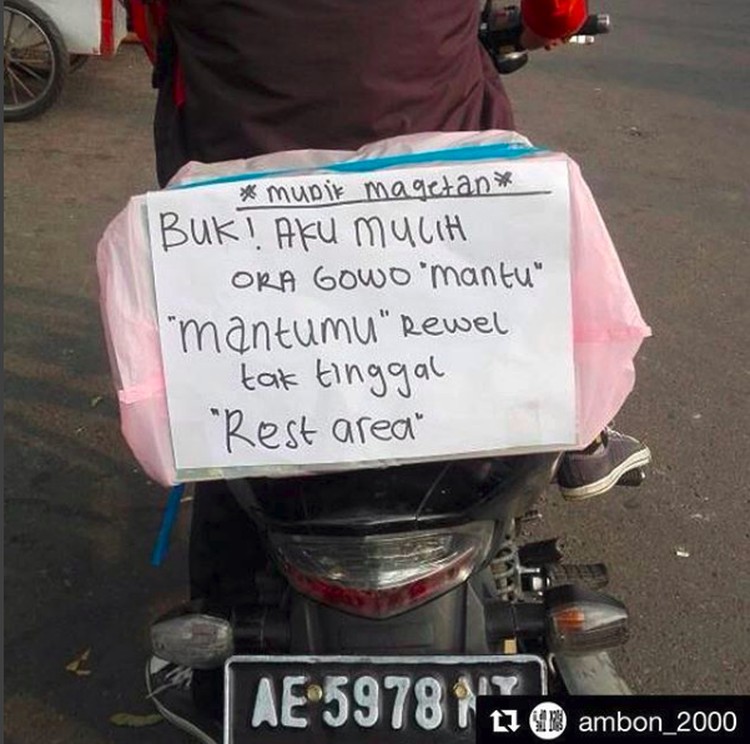 * MUDIK magetan *
BUK! AKU MULIH
ORA GOWO "mantu"
"mantumu" Rewel
tak tinggal
"Rest area"
AE 5978
ambon_2000